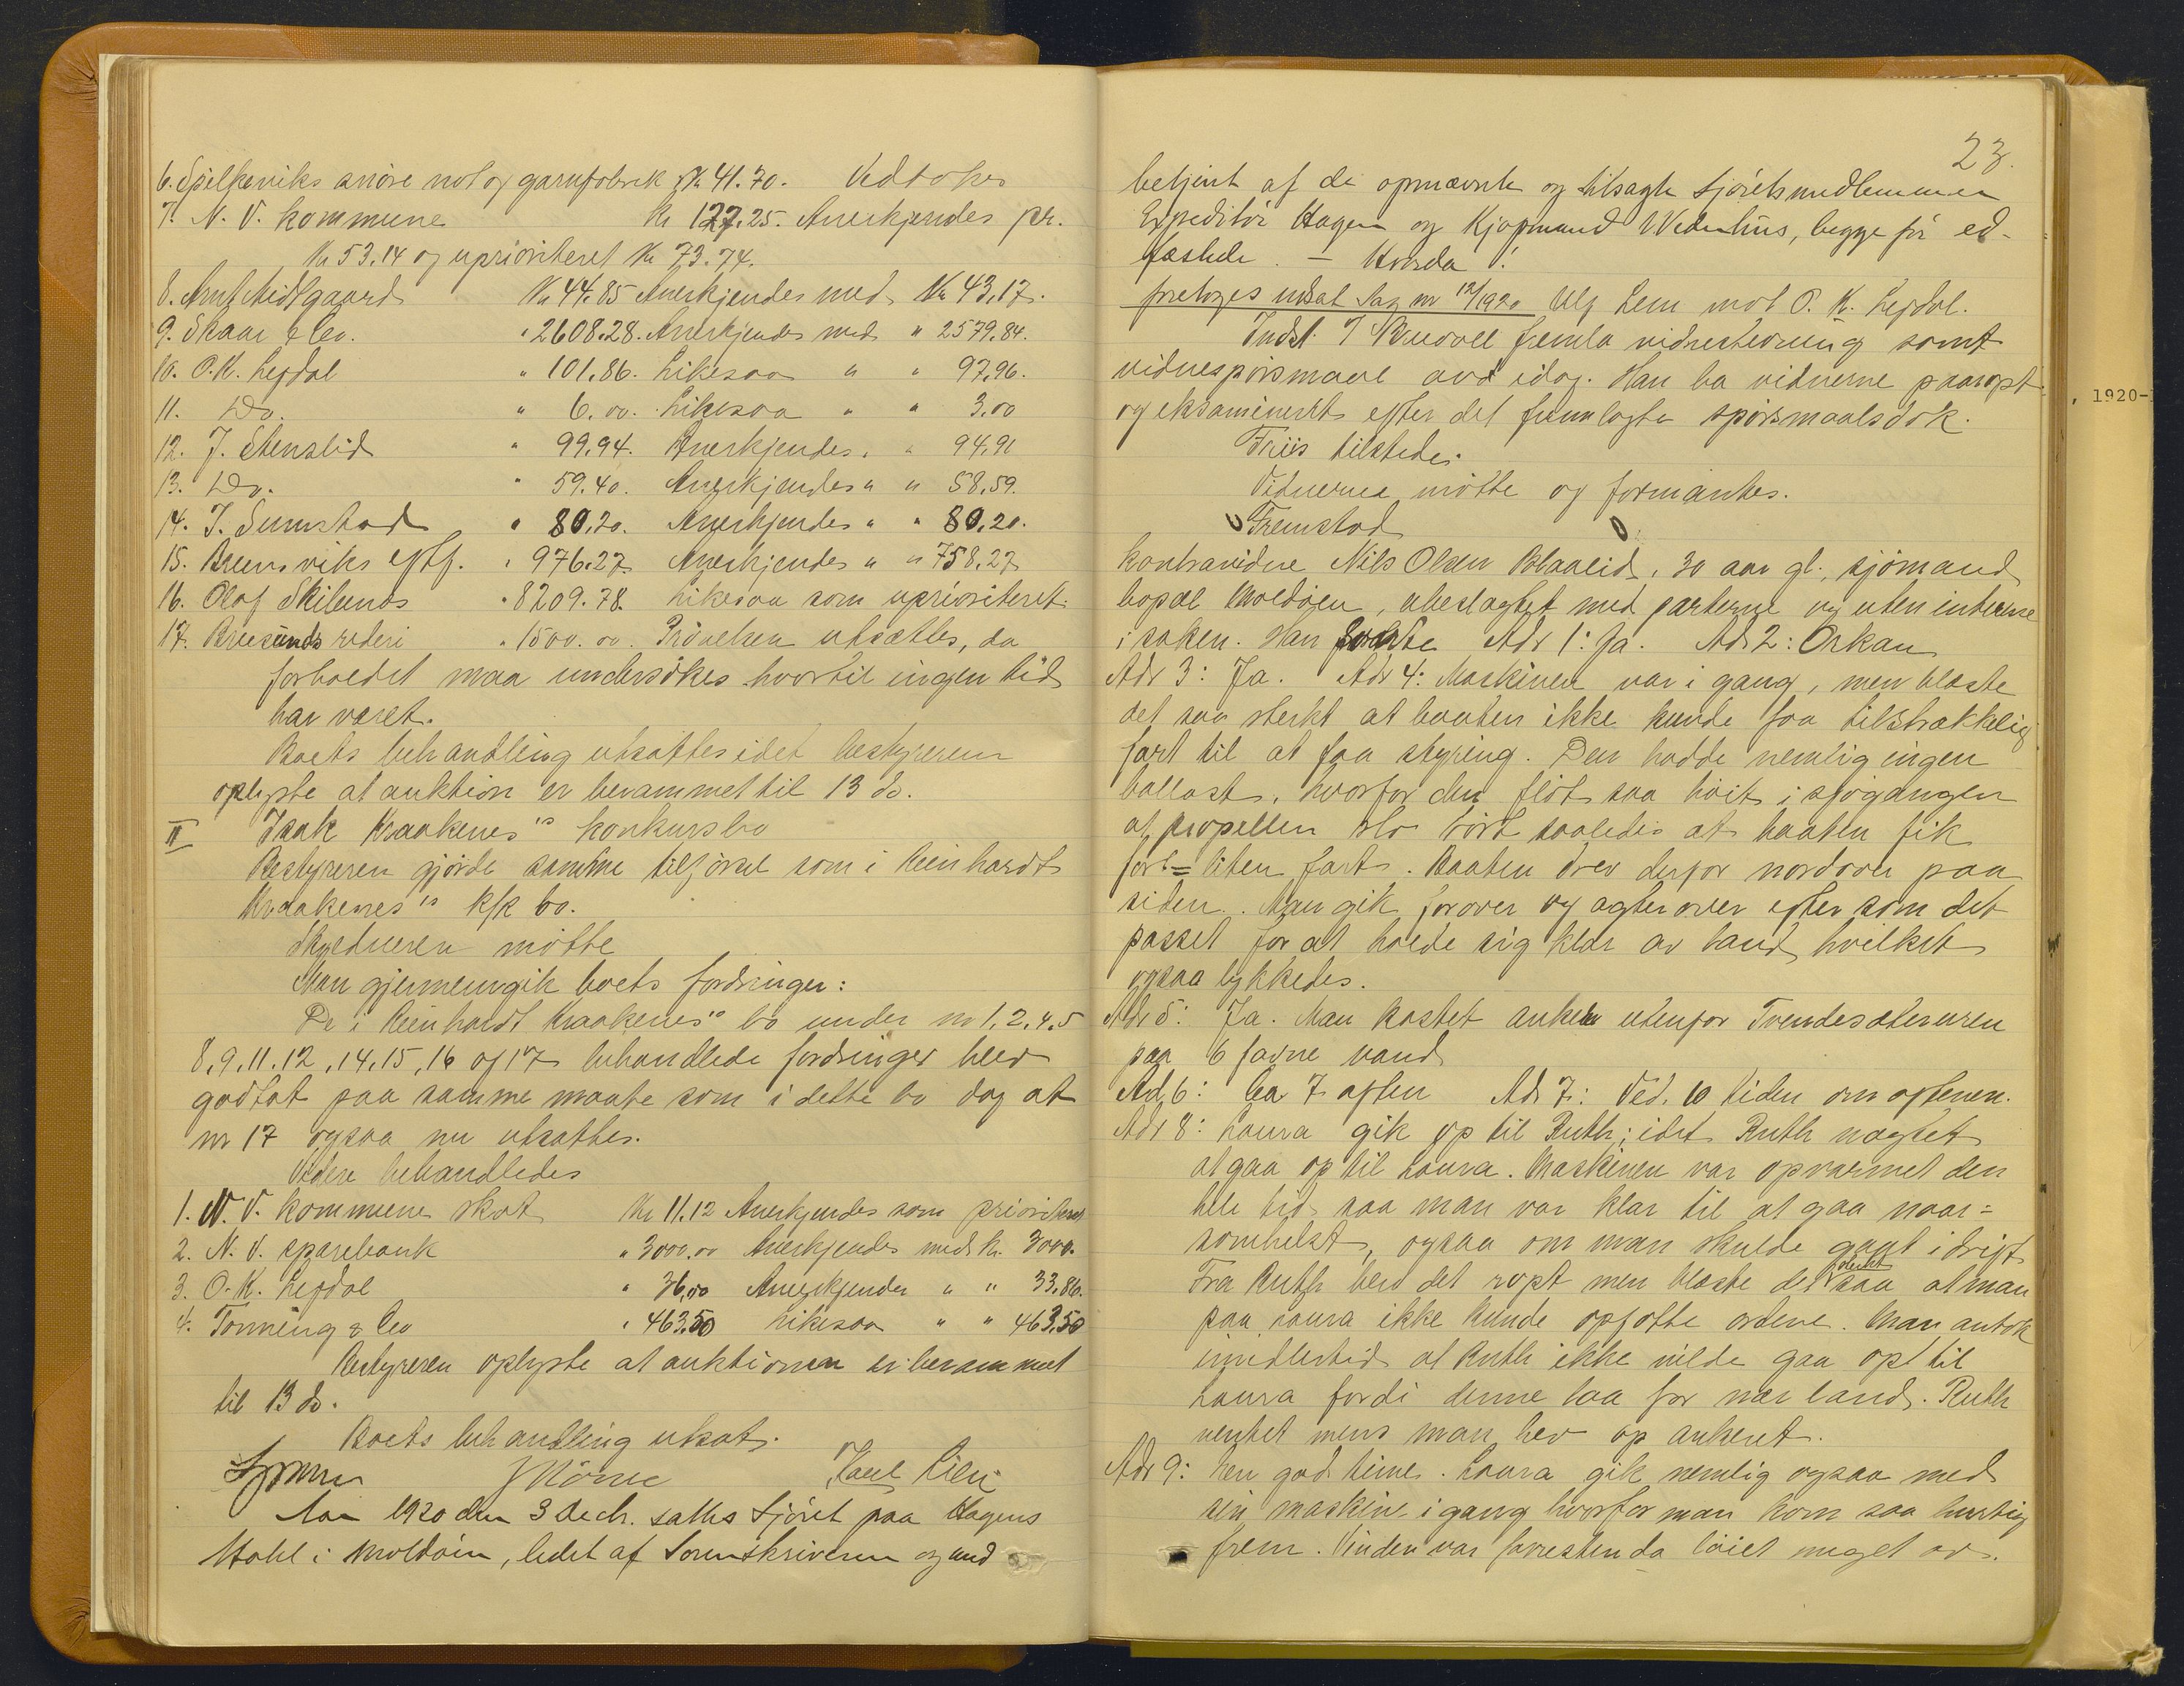 6. Spilkeviks snøre not og garnfabrik Kr 41.70. Vedtokes
7. N. V. kommune Kr 127,25. Anerkjendes pr.
Kr 53.14 og uprioriteret Kr 73.74.
8. Arnf Midtgaard Kr 44.85 Anerkjendes med Kr 43,17.
9. Skaar & Co. " 2608.28. Anerkjendes med " 2579,84.
10. O. K. Lefdal " 101,86. Likesaa " " 97,96.
11. Do. " 6.00. Likesaa " " 3.00
12. J. Stenslid " 99,94. Anerkjendes " " 94,91
13. Do. " 59.40. Anerkjendes " " 58,59.
14. J. Sunnstad " 80,20. Anerkjendes " " 80,20.
15. Brunsviks eftf. " 976.27 Anerkjendes " " 758,27
16. Olaf Skibenes " 8209.78. Likesaa som uprioriteret.
17. Bruesunds rederi " 1500.00. Prövelsen utsættes, da
forholdet maa undersökes hvortil ingen tid
har været.
Boets behandling utsattes idet bestyreren
oplyste at auktion er berammet til 13 ds.
II Isak Kraakenes's konkursbo
Bestyreren gjorde samme tilförsel som i Reinhardt
Kraakenes's k/k bo.
Skyldneren mötte
Man gjennemgik boets fordringer:
De i Reinhardt Kraakenes's bo under nr 1, 2, 4, 5
8, 9, 11, 12, 14, 15, 16 og 17 behandlede fordringer blev
godtat paa samme maate som i dette bo dog at
nr 17 ogsaa nu utsattes.
Videre behandledes
1. N. V. kommune skat Kr 11.12 Anerkjendes som prioriteret
2. N. V. sparebank " 3000.00 Anerkjendes med kr. 3000.
3. O. K. Lefdal " 36,00 Anerkjendes " " 33,86.
4. Tonning & Co " 463.50 Likesaa " " 463,50
Bestyreren oplyste at auktionen er berammet
til 13 ds.
Boets behandling utsat.
Aar 1920 den 3 Decbr. sattes Sjöret paa Hagens
Hotel i Moldöen, ledet af Sorenskriveren og med
23.
betjent af de opnævnte og tilsagte Sjöretsmedlemmer
Expeditör Hagen og Kjöpmand Wedenhus, begge för ed-
fæstede. - Hvorda!
foretoges utsat Sag nr 12/1920 Ulf Lem mot O. K. Lefdal.
Indst. fremla vidnestevning samt
vidnespörsmaal av idag. Han ba vidnerne paaropt
og eksamineret efter det fremlagte spörsmaalsdok.
Friis tilstede.
Vidnerne mötte og formantes.
Fremstod
kontravidne Nils Olsen Blaalid, 30 aar gl., sjömand
bopæl Moldöen, ubeslagtet med parterne og uten interesse
i saken. Han forklarte Ad 1: Ja. Ad 2: Orkan
Ad 3: Ja. Ad 4: Maskinen var i gang, men blaaste
det saa sterkt at baaten ikke kunde faa tilstrækkelig
fart til at faa styring. Den hadde nemlig ingen
ballast, hvorfor den flöt saa höit i sjögangen
at propellen slo tört saaledes at baaten fik
for liten fart. Baaten drev derfor nordover paa
siden. Man gik forover og agterover efter som det
passet for at holde sig klar av land, hvilket
ogsaa lykkedes.
Ad 5: Ja. Man kastet anker utenfor Trendesæterøren
paa 6 favne vand
Ad 6: Ca 7 aften Ad 7: Ved 10 tiden om aftenen.
Ad 8: Laura gik op til Ruth; idet Ruth nægtet
at gaa op til Laura. Maskinen var opvarmet den
hele tid saa man var klar til at gaa naar=
somhelst, ogsaa om man skulde gaat i drift
Fra Ruth blev det ropt men blaaste det sterkt saa at man
paa Laura ikke kunde opfatte ordene. Man antok
imidlertid at Ruth ikke vilde gaa op til
Laura fordi denne laa for nær land. Ruth
ventet mens man hev op ankeret.
Ad 9: En god time. Laura gik nemlig ogsaa med
sin maskine i gang hvorfor man kom saa hurtig
frem. Vinden var forresten da löiet noget av.
, 1920-